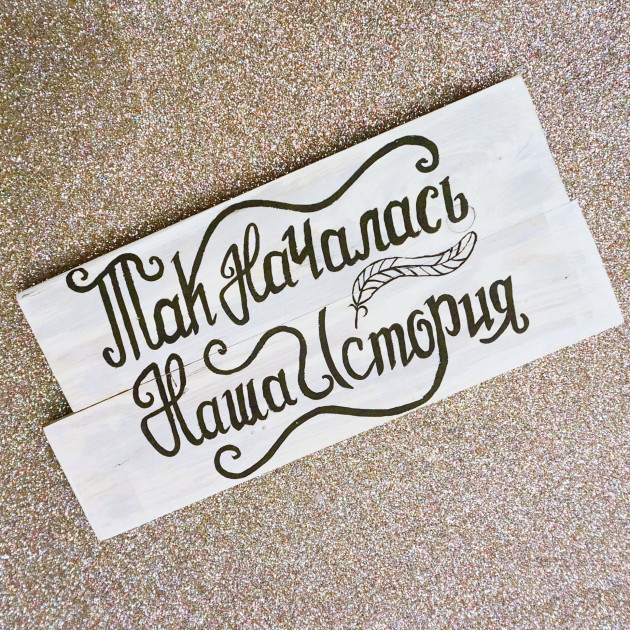 Так Началась
Наша История